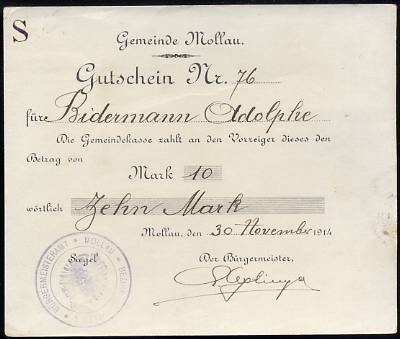 S
Gemeinde Mollau.
Gutschein Nr. 76
für Bidermann Adolphe
Die Gemeindekasse zahlt an den Vorzeiger dieses den
Betrag von
Mark 10
wörtlich Zehn Mark
Mollau, den 30 November 1914
Siegel
Der Bürgermeister,
BÜRGERMEISTERAMT * MOLLAU *